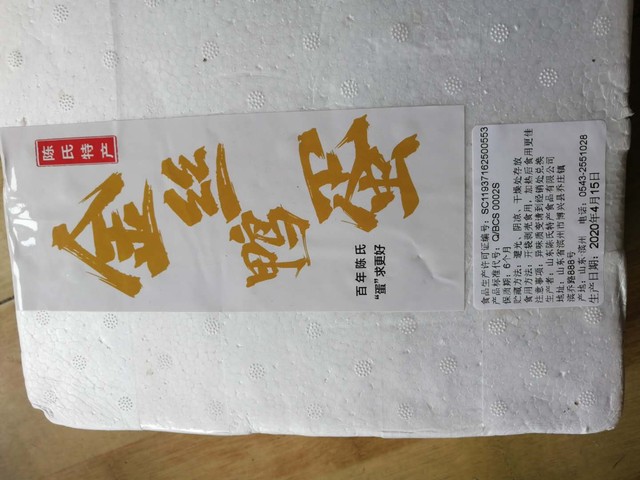 陈氏特产
金丝鸭蛋
百年陈氏
“蛋”求更好
食品生产许可证编号：SC11937162500553
产品标准代号：Q/BCS 0002S
保质期：6个月
贮藏方法：避光、阴凉、干燥处存放
食用方法：开袋剥壳食用，加热后食用更佳
注意事项：异味质变请到经销处兑换
生产者：山东陈氏特产食品有限公司
地址：山东省滨州市博兴县乔庄镇
滨乔路888号
产地：山东·滨州 电话：0543-2551028
生产日期：2020年4月15日